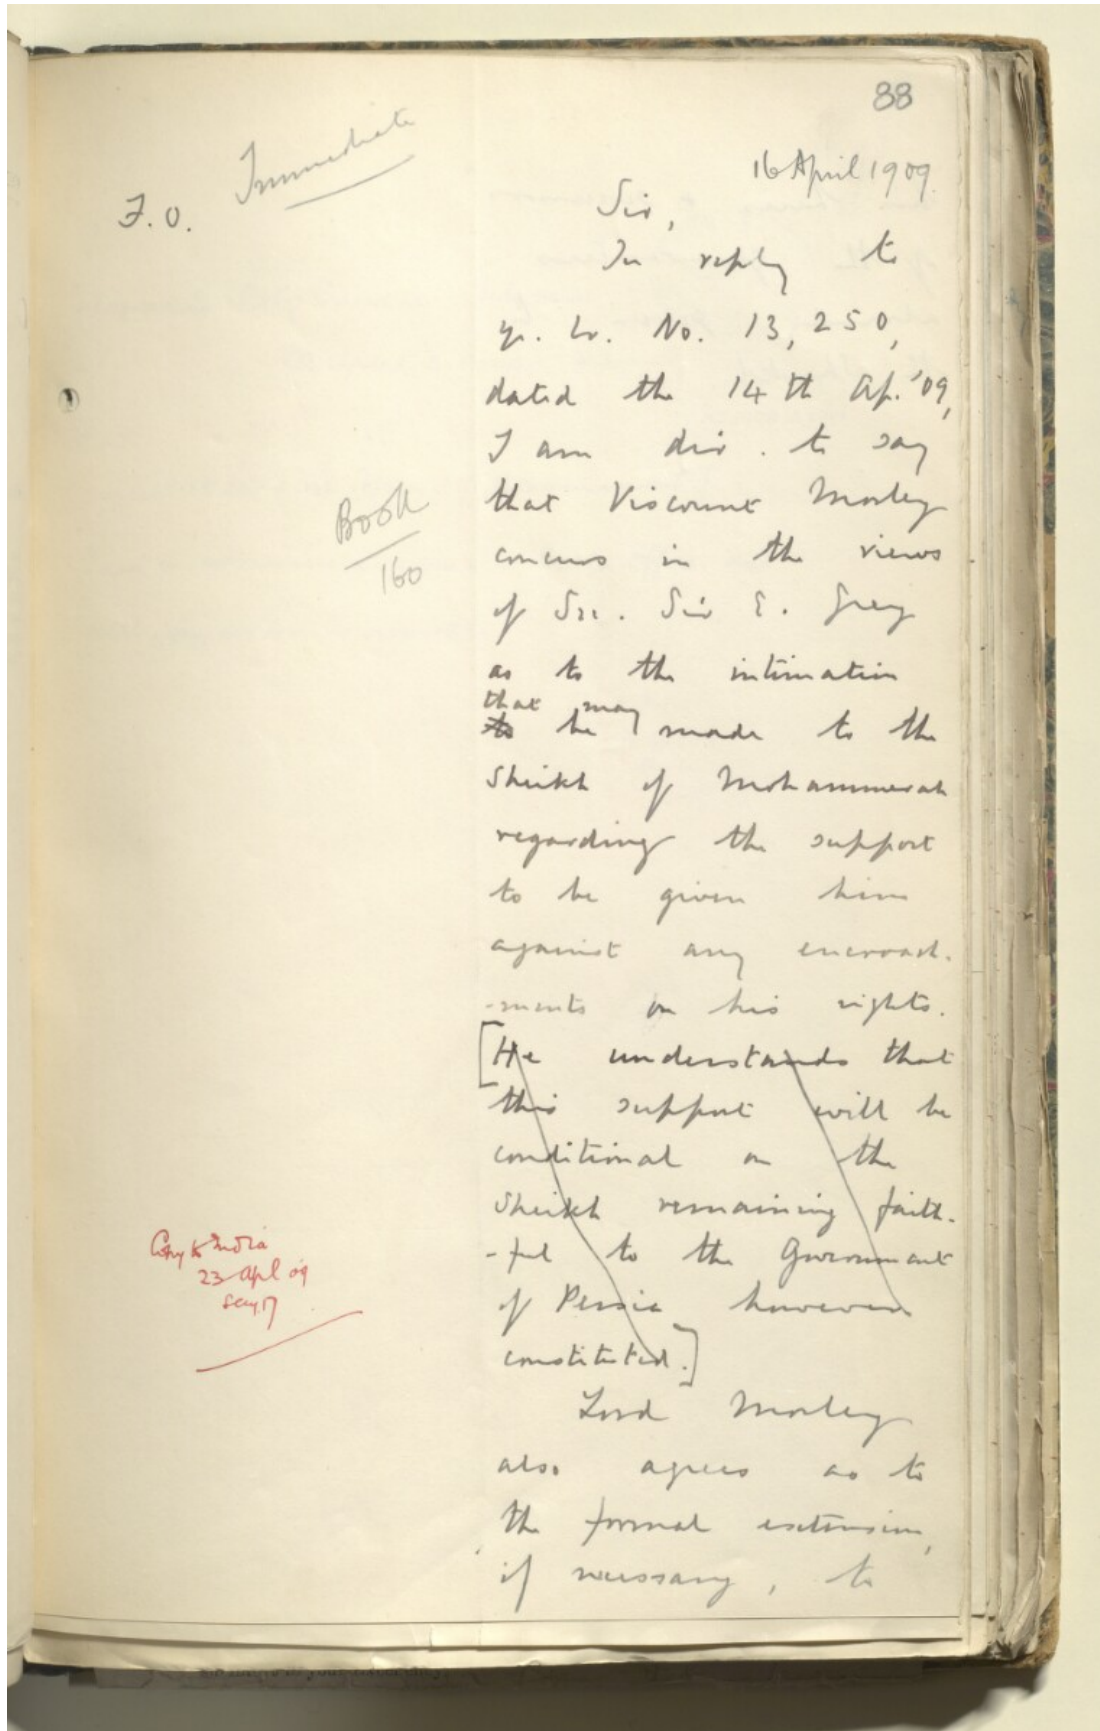 88
Immediate
F.O.
16 April 1909.
Sir,
In reply to
yr. lr. No. 13,250,
dated the 14th Ap. '09,
I am dir. to say
that Viscount Morley
concurs in the views
of Sec. Sir E. Grey
as to the intimation
that may
to be made to the
Sheikh of Mohammerah
regarding the support
to be given him
against any encroach-
-ments on his rights.
[He understands that
this support will be
conditional on the
Sheikh remaining faith-
-ful to the Government
of Persia however
constituted.]
Lord Morley
also agrees as to
the formal extension,
if necessary, to
Book
160
Copy to India
23 Apl 09
Secy 17